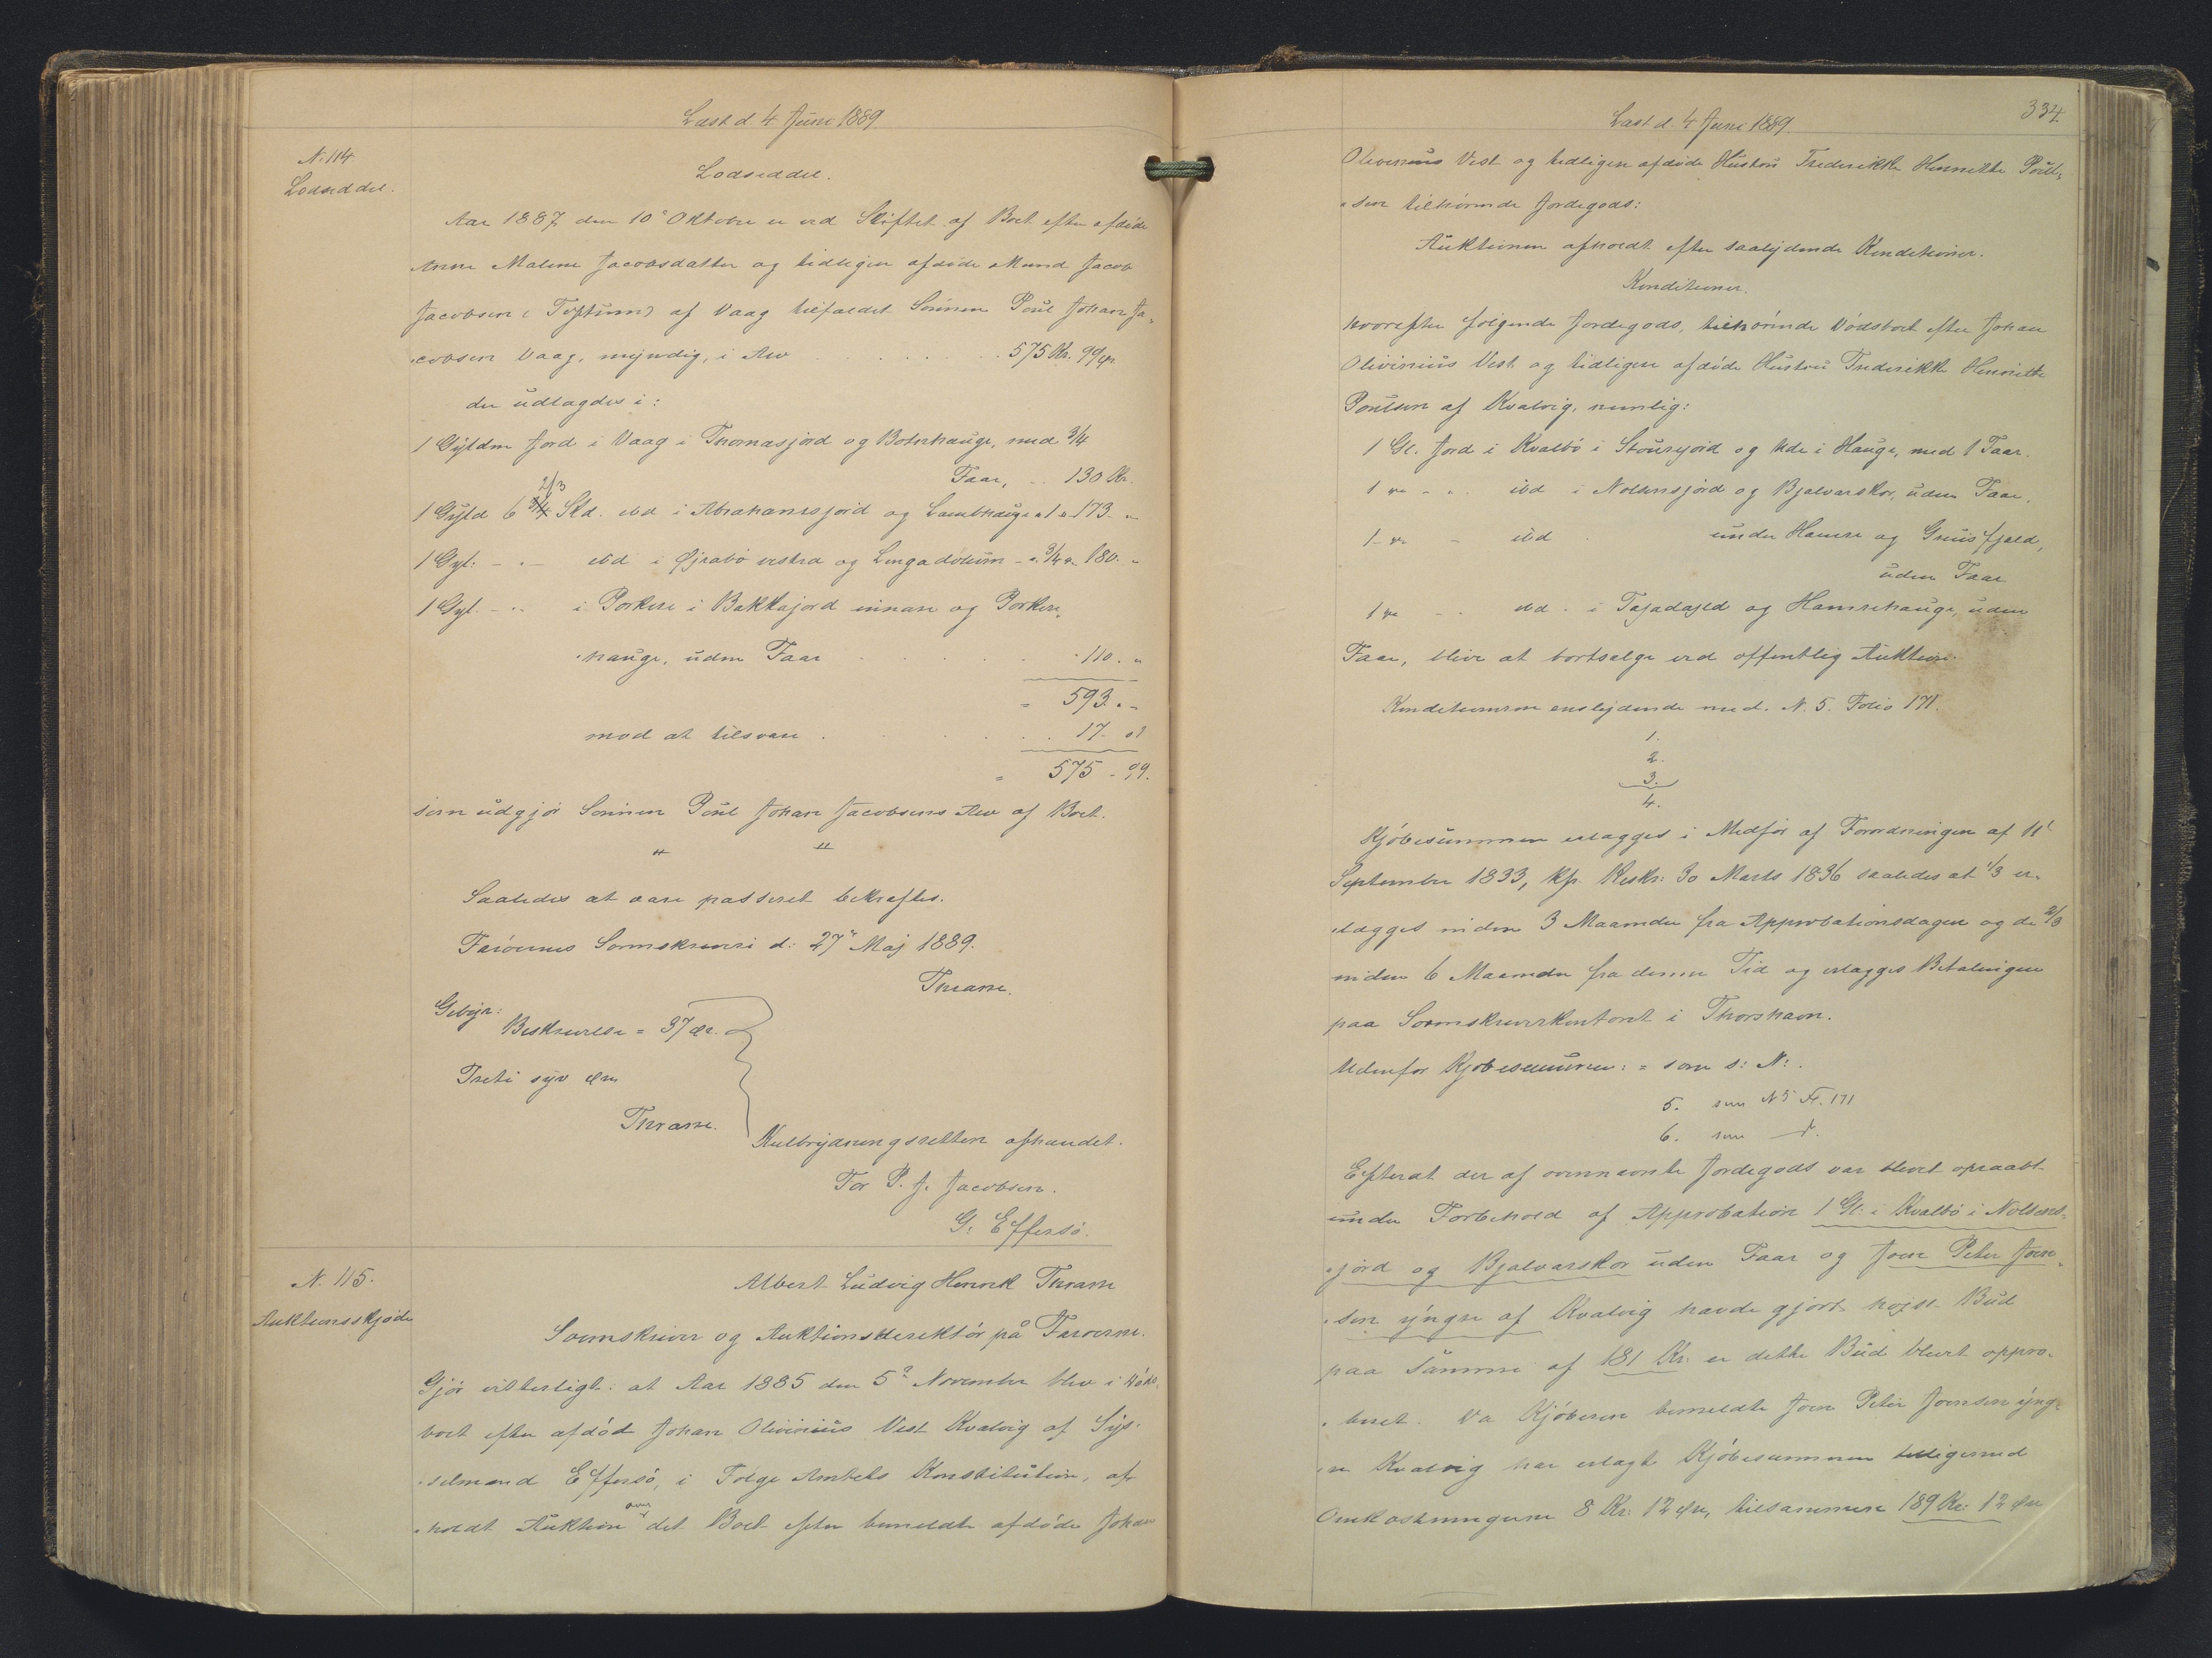 Læst d. 4. Juni 1889
N. 114
Lodseddel.
Lodseddel.
Aar 1887 den 10' Oktober er ved Skiftet af Boet efter afdöde
Anne Malene Jacobsdatter og tidligere afdöde Mand Jacob
Jacobsen (Toftum) af Vaag tilfaldet Sönnen Poul Johan Ja-
-cobsen Vaag, myndig, i Arv . . . . 575 Kr. 99 Ør.
der udlagdes i:
1 Gylden Jord i Vaag i Thomasjord og Botnhauge, med 3/4
Faar, .. 130 Kr.
1 Gyld 6 2/3 Skd. ibd i Abrahamsjord og Lambhauge " 1 " 173 - "
1 Gyl. - " - ibd i Øjrabö vestra og Lengadölum - " 3/4 " 180. "
1 Gyl. - " - i Porkere i Bakkajord innare og Porkere-
-hauge, uden Faar . . . . 110. "
= 593. " -
mod at tilsvare . . . . 17. 01
= 575 - 99.
som udgjör Sönnen Poul Johan Jacobsens Arv af Boet.
" "
Saaledes at være passeret bekræftes.
Færöernes Sorenskriveri d: 27" Maj 1889.
Thrane.
Gebyr:
Beskrivelse = 37 Ør.
Treti syv Øre
Thrane.
Kulbrydningsretten afhændet.
For P. J. Jacobsen.
G. Effersö.
N. 115.
Auktionsskjöde
Albert Ludvig Henrik Thrane
Sorenskriver og Auktionsdirektör på Færoerne.
Gjör vitterligt: at Aar 1885 den 5' November blev i Döds-
boet efter afdöd Johan Olivinius Vest Kvalvig af Sys-
-selmand Effersö, i Fölge Amtets Konstitution, af-
-holdt Auktion over det Boet efter bemeldte afdöde Johan
Læst d. 4 Juni 1889
334
Olivinius Vest og tidligere afdöde Hustru Frederikke Henriette Poul-
-sen tilhörende Jordegods:
Auktionen afholdt efter saalydende Konditioner.
Konditioner.
hvorefter fölgende Jordegods, tilhörende Dödsboet efter Johan
Olivinius Vest og tidligere afdöde Hustru Frederikke Henriette
Poulsen af Kvalvig, nemlig:
1 Gl. Jord i Kvalbö i Stourejord og Ude i Hauge, med 1 Faar.
1 " - " ibd i Nolsensjord og Bjalvarskor, uden Faar.
1 - " - ibd under Hamre og Gruisfjeld,
uden Faar
1 " - " ibd. i Tajadajld og Hamrehauge, uden
Faar, bliver at bortsælge ved offentlig Auktion.
Konditionerne enslydende med. N. 5. Folio 171.
1.
2.
3.
4.
Kjöbesummen erlægges i Medför af Forordningen af 11'
September 1833, kfr. Reskr: 30 Marts 1836 saaledes at 1/3 er-
-lægges inden 3 Maaneder fra Approbationsdagen og de 2/3
inden 6 Maaneder fra denne Tid og erlægges Betalingen
paa Sorenskriverkontoret i Thorshavn.
Udenfor Kjöbesummen: = som s: N:.
5. som N 5 Fl. 171
6. som d.
Efterat der af ovennævnte Jordegods var blevet opraabt
under Forbehold af Approbation 1 Gl: i Kvalbö i Nolsens-
-jord og Bjalvarskor uden Faar og Joen Peter Joen-
-sen yngre af Kvalvig havde gjort höjst Bud
paa samme af 181 Kr. er dette Bud blevet appro-
-beret. Da Kjöberen bemeldte Joen Peter Joensen yng-
-re Kvalvig har erlagt Kjöbesummen tilligemed
Omkostningerne 8 Kr. 12 Øre, tilsammen 189 Kr. 12 Øre